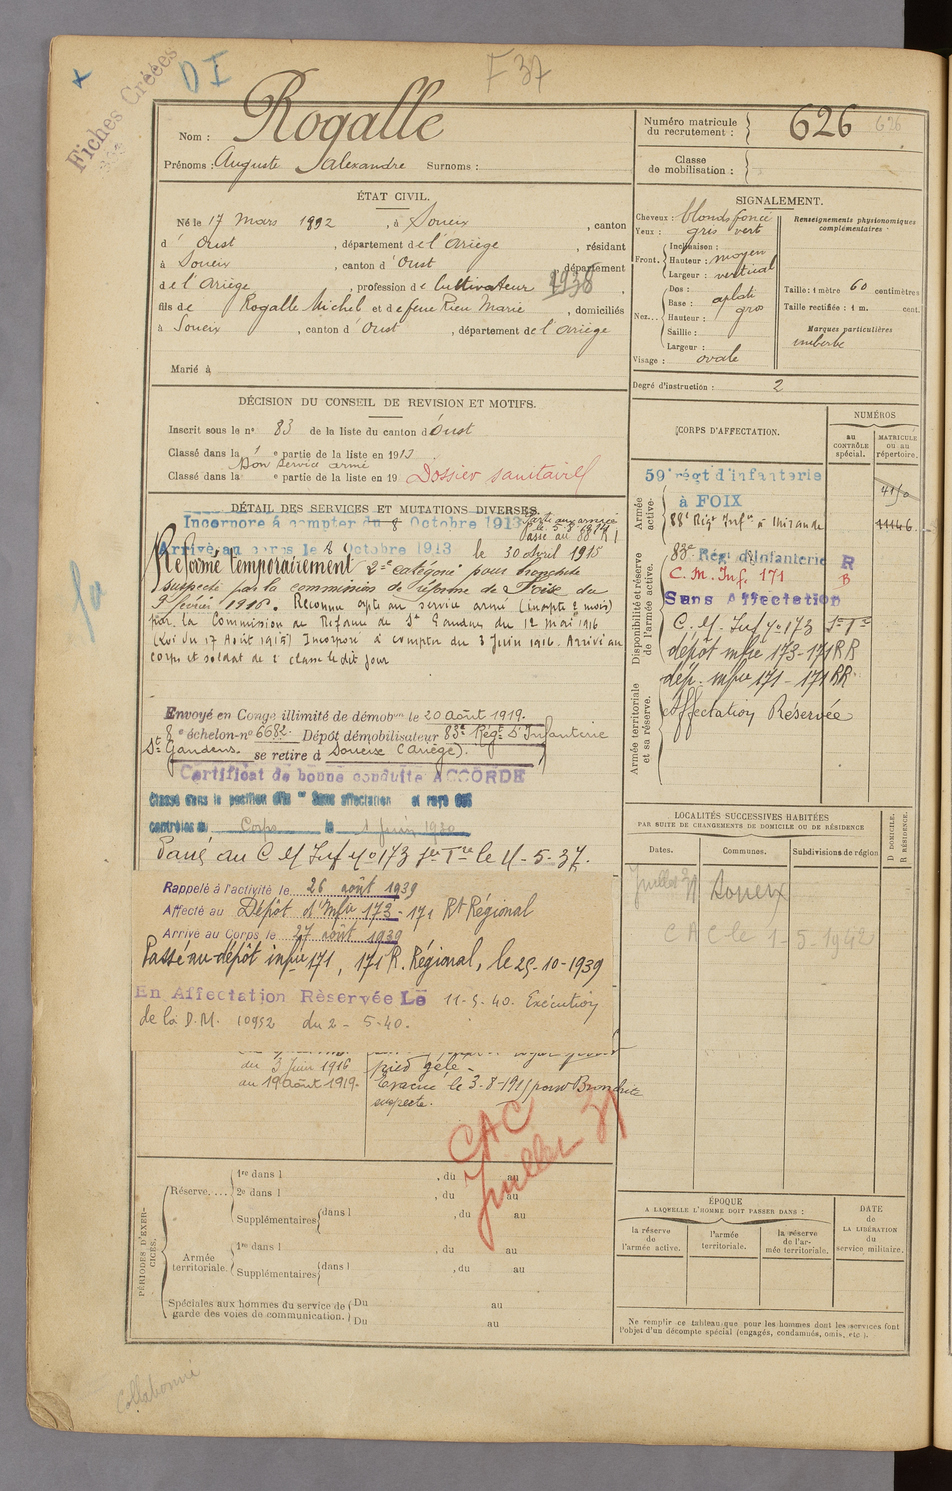 Fiches Créées
D I
F 37
Nom : Rogalle
Prénoms : Auguste Alexandre Surnoms :
Numéro matricule du recrutement : 626 626
Classe de mobilisation :
ÉTAT CIVIL.
Né le 17 Mars 1892, à Soueix, canton
d' Oust, département de l'Ariège, résidant
à Soueix, canton d'Oust, département
de l'Ariège, profession de Cultivateur 1938
fils de Rogalle Michel et de feue Rieu Marie, domiciliés
à Soueix, canton d'Oust, département de l'Ariège
Marié à
SIGNALEMENT.
Cheveux : blonds foncé
Yeux : gris vert
Front. Inclinaison :
Hauteur : moyen
Largeur : vertical
Nez... Dos :
Base : aplati
Hauteur : gros
Saillie :
Largeur :
Visage : ovale
Renseignements physionomiques complémentaires
Taille : 1 mètre 60 centimètres
Taille rectifiée : 1 m. cent.
Marques particulières
imberbe
Degré d'instruction : 2
DÉCISION DU CONSEIL DE REVISION ET MOTIFS.
Inscrit sous le n° 83 de la liste du canton d'Oust
Classé dans la 1 e partie de la liste en 1913
Bon service armé
Classé dans la e partie de la liste en 19 Dossier sanitaire
DÉTAIL DES SERVICES ET MUTATIONS DIVERSES.
Incorporé à compter du 8 Octobre 1913 Parti aux armées
le 5.8.1914
Passé au 88 R I
Arrivé au corps le 8 Octobre 1913 le 30 avril 1915
Réformé temporairement 2e catégorie pour bronchite
suspecte par la commission de réforme de Foix du
9 février 1916. Reconnu apte au service armé (inapte 2 mois)
par la Commission de Réforme de St Gaudens du 12 mai 1916
(Loi du 17 Août 1915) Incorporé à compter du 3 Juin 1916. Arrivé au
corps et soldat de 2e classe le dit jour
Envoyé en Congé illimité de démobon le 20 août 1919.
8 e échelon-n° 6682. Dépôt démobilisateur 83e Régt D'Infanterie
St Gaudens. se retire à Soueix (Ariège).
Certificat de bonne conduite ACCORDÉ
Classé dans la position dite "Sans affectation" et rayé des
contrôles du Corps le 1 Juin 1930
Passé au C M Inf n° 173 Sr Tre le 4-5-37.
Rappelé à l'activité le 26 août 1939
Affecté au Dépôt d'Infie 173-171 Rt Régional
Arrivé au Corps le 27 août 1939
Passé au dépôt infie 171, 171 R. Régional, le 25-10-1939
En Affectation Réservée Le 11-5-40. Exécution
de la D.M. 10952 du 2-5-40.
du 3 Juin 1916
au 19 août 1919.
pied gelé.
Evacué le 3-8-191 pour Bronchite
suspecte.
CAC
Juillet 31
CORPS D'AFFECTATION.
NUMÉROS
AU CONTRÔLE spécial.
MATRICULE OU AU répertoire.
Armée active.
59e régt d'infanterie
à FOIX
88e Régt Infie à Mirande
Disponibilité et réserve de l'armée active.
83e Régt d'Infanterie R
C. M. Inf. 171 B
Sans Affectation
C. M. Inf n° 173 Sr Tre
dépôt infie 173-171 RR
dép. infie 171-171 RR
Affectation Réservée
Armée territoriale et sa réserve.
LOCALITÉS SUCCESSIVES HABITÉES
PAR SUITE DE CHANGEMENTS DE DOMICILE OU DE RÉSIDENCE
Dates.
Communes.
Subdivisions de région
D DOMICILE.
R RÉSIDENCE.
Juillet 31 Soueix
C A C le 1-5-1942
PÉRIODES D'EXERCICES.
Réserve.... 1re dans l , du au
2e dans l , du au
Supplémentaires dans l , du au
Armée territoriale. 1re dans l , du au
Supplémentaires dans l , du au
Spéciales aux hommes du service de garde des voies de communication. Du au
Du au
ÉPOQUE
A LAQUELLE L'HOMME DOIT PASSER DANS :
la réserve de l'armée active.
l'armée territoriale.
la réserve de l'armée territoriale.
DATE de LA LIBÉRATION du service militaire.
Ne remplir ce tableau que pour les hommes dont les services font
l'objet d'un décompte spécial (engagés, condamnés, omis, etc.).